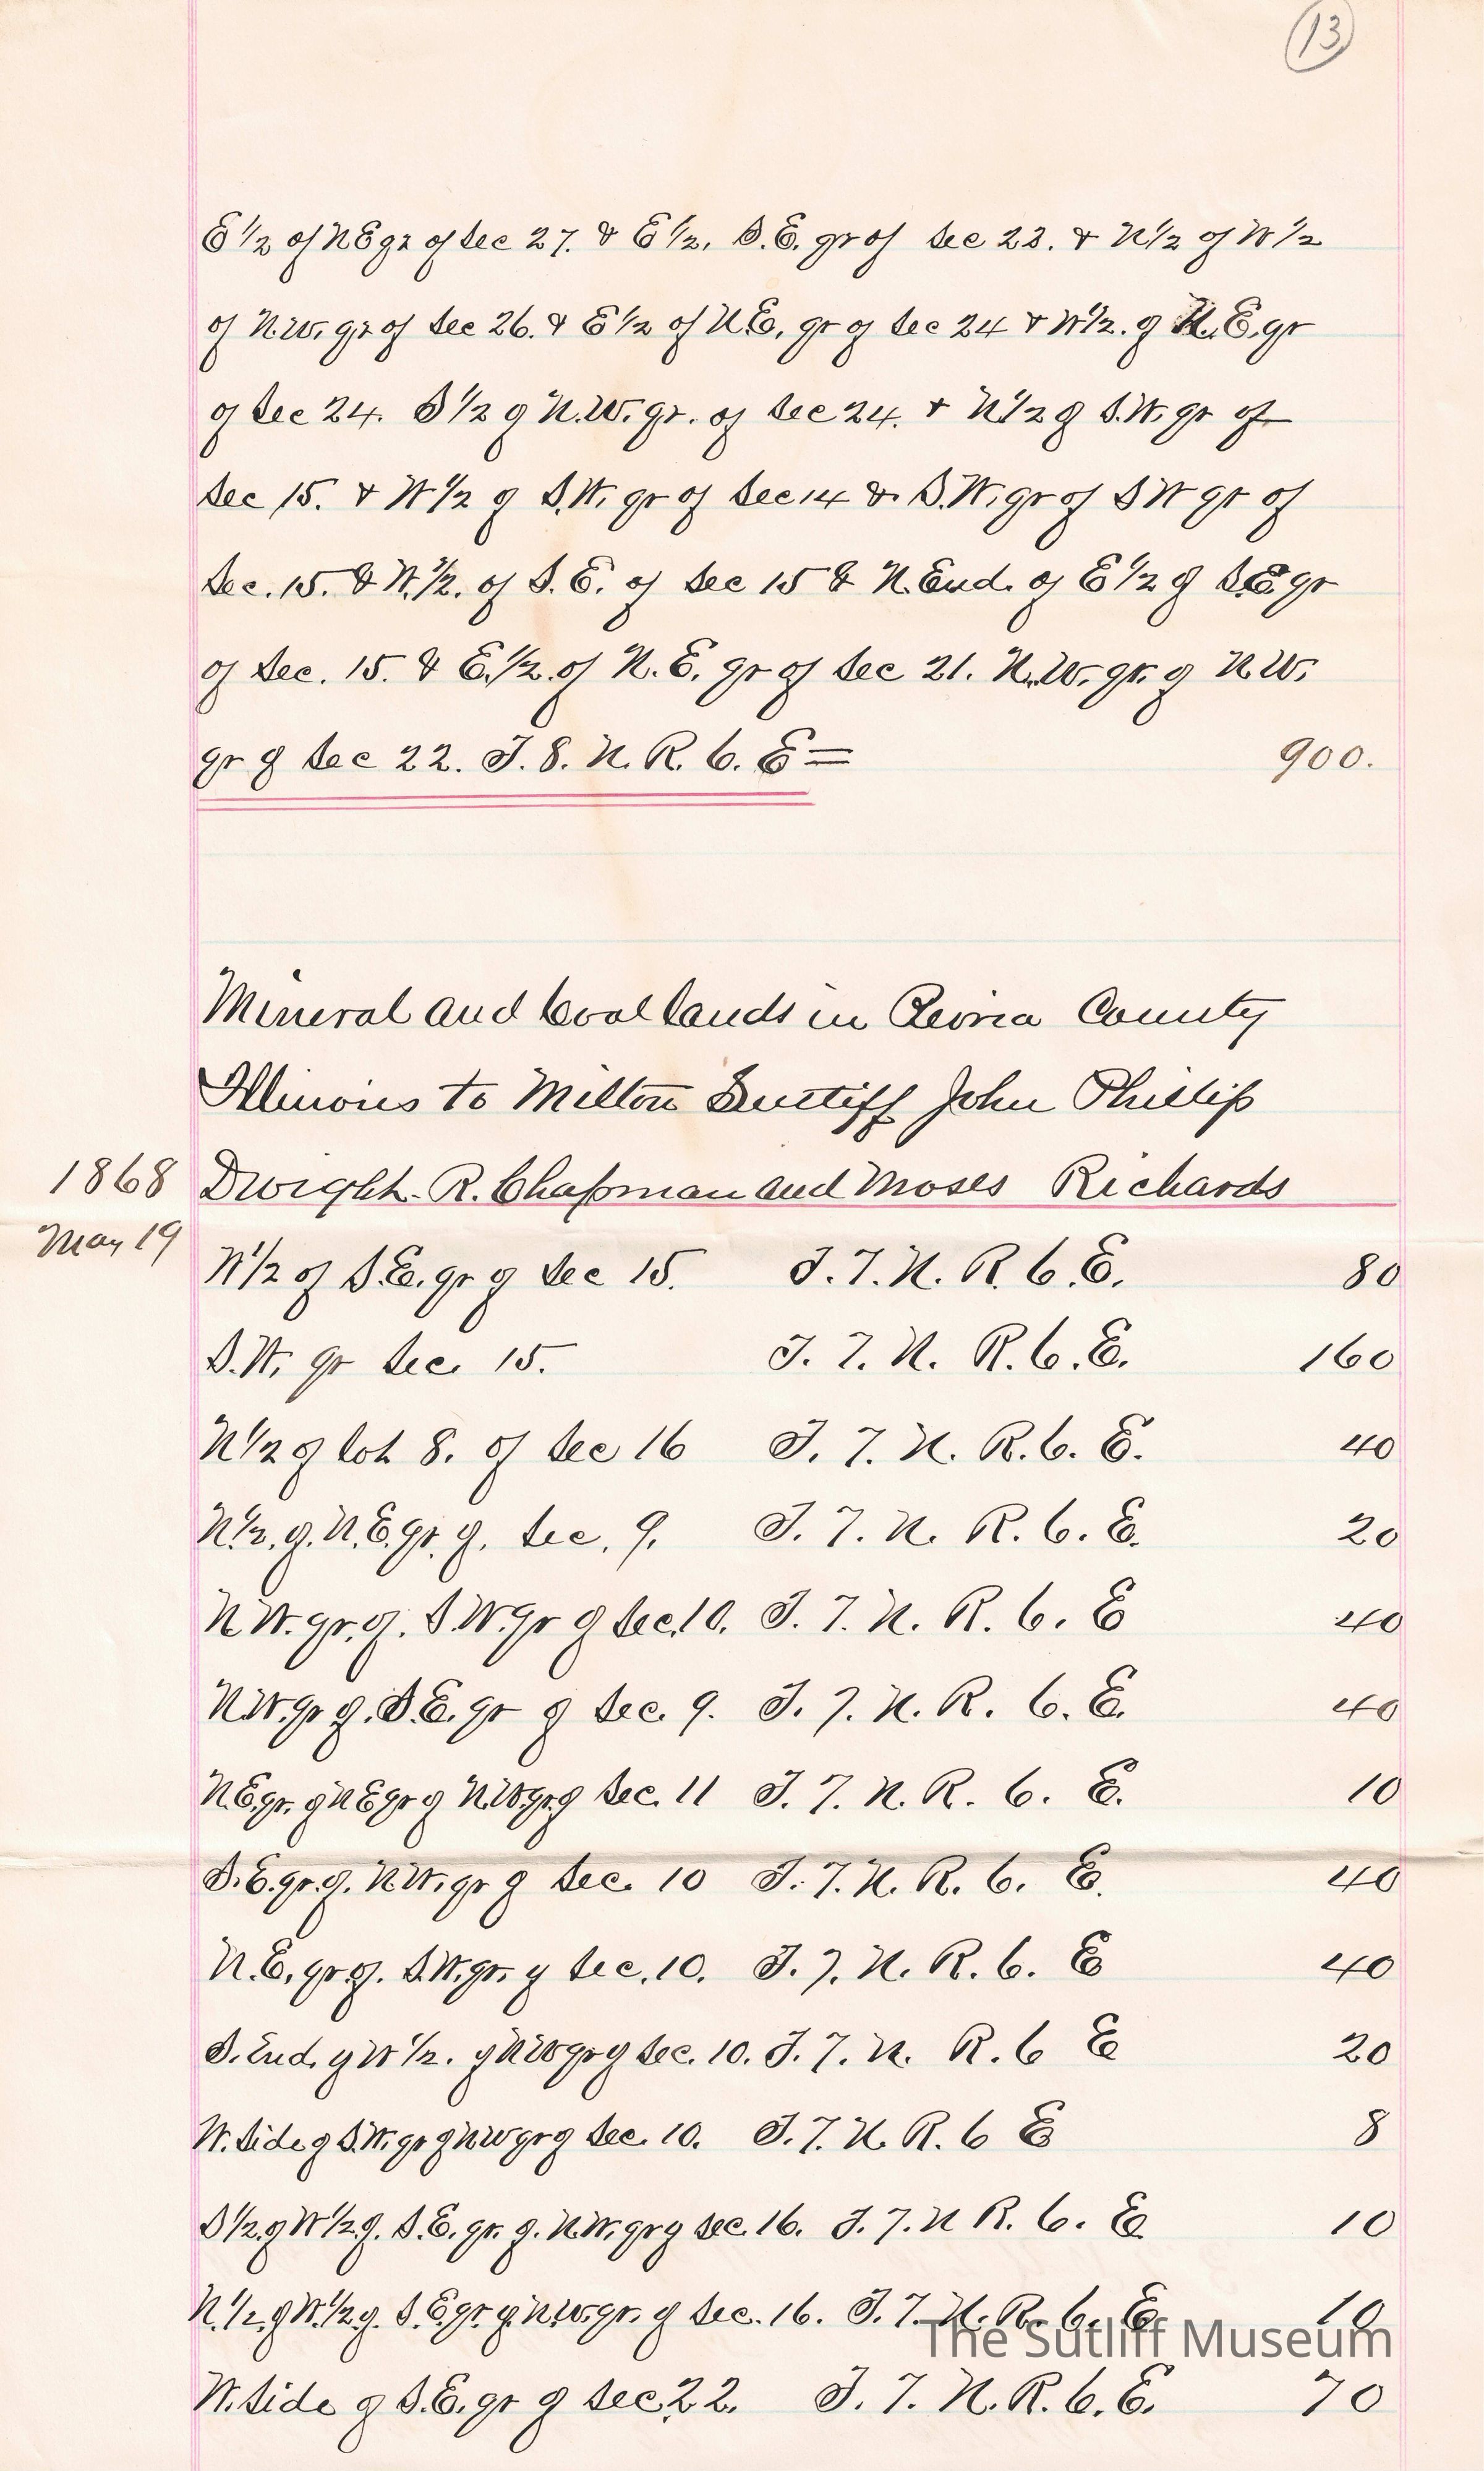 13
E 1/2 of N E qr of Sec 27. & E 1/2. S.E. qr of Sec 22. & N 1/2 of W 1/2
of N.W. qr of Sec 26. & E 1/2 of N E. qr of Sec 24 & W 1/2. of N.E. qr
of Sec 24. S 1/2 of N.W. qr. of Sec 24. & N 1/2 of S.W. qr of
Sec 15. & W 1/2 of S.W. qr of Sec 14 & S.W. qr of S W qr of
Sec. 15. & W. 1/2. of S.E. of Sec 15 & N. End. of E 1/2 of S.E. qr
of Sec. 15. & E. 1/2. of N.E. qr of Sec 21. N.W. qr. of N.W.
qr of Sec 22. T. 8. N. R. 6. E = 900.
Mineral and Coal lands in Peoria County
Illinois to Milton Sutliff John Phillips
1868 Dwight R. Chapman and Moses Richards
May 19
W 1/2 of S.E. qr of Sec 15. T. 7. N. R. 6. E. 80
S.W. qr Sec. 15. T. 7. N. R. 6. E. 160
N 1/2 of lot 8. of Sec 16 T. 7. N. R. 6. E. 40
N. 1/2. of. N.E. qr. of. Sec. 9. T. 7. N. R. 6. E. 20
N W. qr. of. S.W. qr of Sec. 10. T. 7. N. R. 6. E 40
N.W. qr of. S.E. qr of Sec. 9. T. 7. N. R. 6. E. 40
N.E. qr. of N E qr of N.W. qr. of Sec. 11 T. 7. N. R. 6. E. 10
S.E. qr. of. N W. qr of Sec. 10 T. 7. N. R. 6. E. 40
N.E. qr of. S.W. qr. of Sec. 10. T. 7. N. R. 6. E 40
S. End. of W 1/2. of N W qr of Sec. 10. T. 7. N. R. 6 E 20
W. Side of S.W. qr of N W qr of Sec. 10. T. 7. N. R. 6 E 8
S 1/2. of W 1/2 of. S.E. qr. of. N.W. qr of Sec. 16. T. 7. N R. 6. E 10
N. 1/2. of W. 1/2 of. S.E. qr of. N.W. qr. of Sec. 16. T. 7. N. R. 6. E 10
The Sutliff Museum
W. Side of S.E. qr of Sec. 22. T. 7. N. R. 6. E. 70